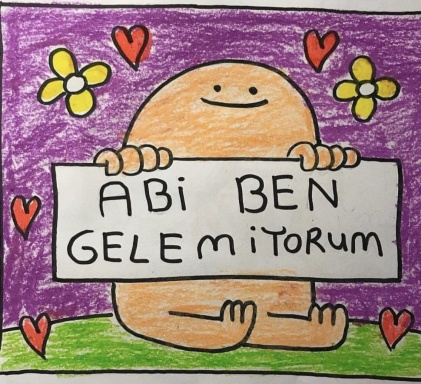 ABİ BEN
GELEMİTORUM